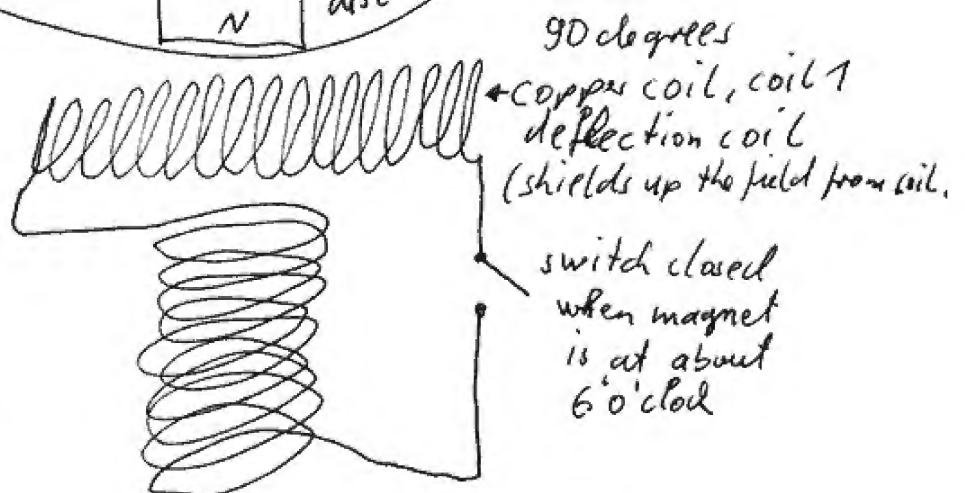 N disc
90 degrees
copper coil, coil 1
deflection coil
(shields up the field from coil.
switch closed
when magnet
is at about
6 o'clock